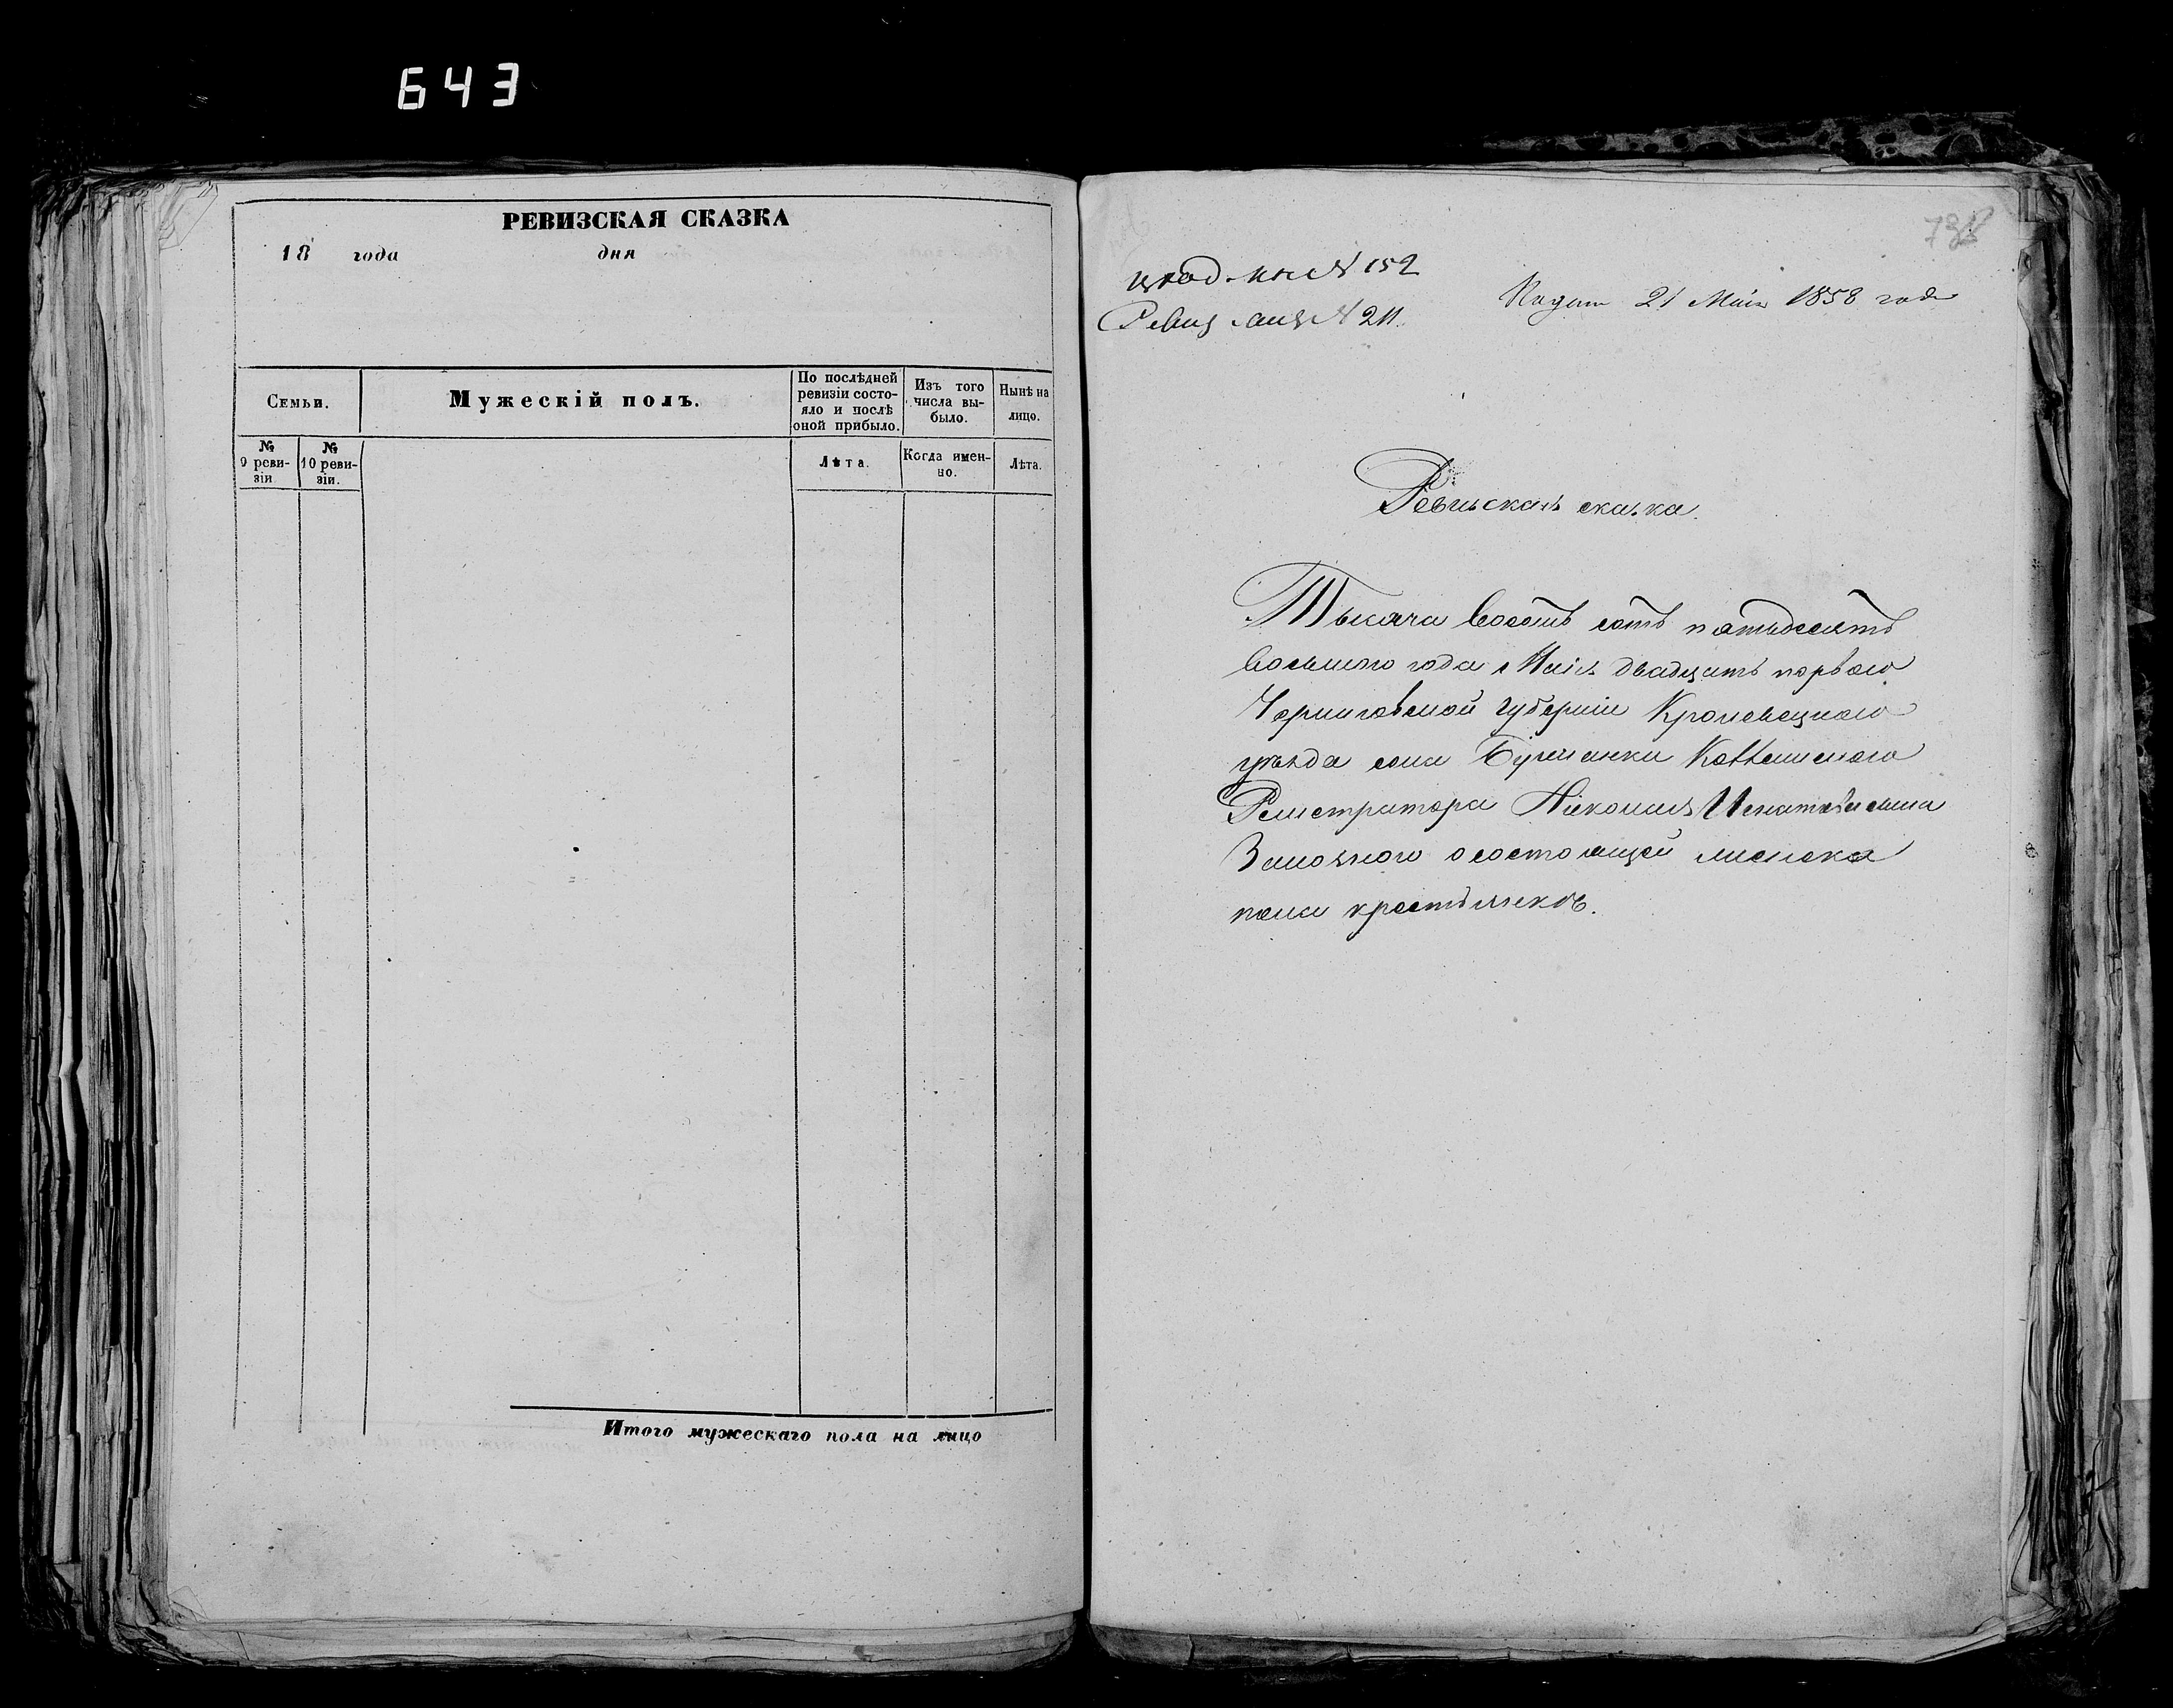 643
РЕВИЗСКАЯ СКАЗКА
18 года дня
Семьи.
Мужескій полъ.
По послѣдней ревизіи состо-
яло и послѣ
оной прибыло.
Изъ того
числа вы-
было.
Нынѣ на
лицо.
№
9 реви-
зіи.
№
10 реви-
зіи.
Лѣта.
Когда имен-
но.
Лѣта.
Итого мужескаго пола на лицо
№ 152
Ревиз № 211.
21 Маія 1858 года
Ревизская сказка.
Тысяча восемь сотъ пятьдесятъ
восьмого года Маія двадцать первого
Черниговской губерніи Кролевецкого
уѣзда села
Регистратора
о состоящей женска
пола крестьянковъ.